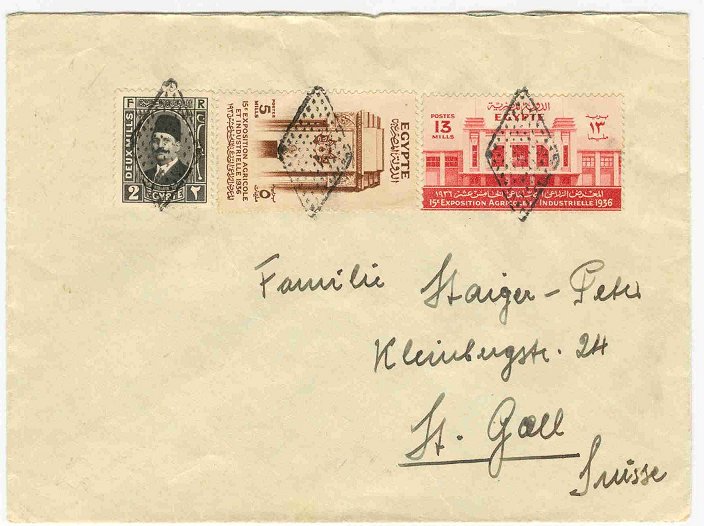 F R
DEUX MILLS
2 EGYPTE ٢
POSTES 5 MILLS
15ᵉ EXPOSITION AGRICOLE
ET INDUSTRIELLE 1936
EGYPTE
٥
POSTES
13
MILLS
EGYPTE
١٣
١٩٣٦
15ᵉ EXPOSITION AGRICOLE INDUSTRIELLE 1936
Familie Staiger-Peter
Kleinbergstr. 24
St. Gall
Suisse